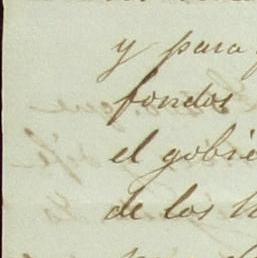 y para
fondos
el gobie
de los